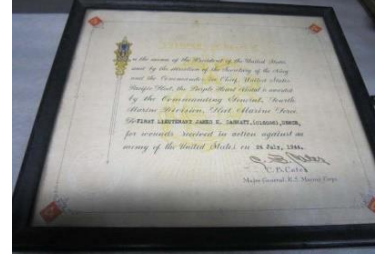 In the name of the President of the United States
and by the direction of the Secretary of the Navy
and the Commander in Chief, United States
Pacific Fleet, the Purple Heart Medal is awarded
by the Commanding General, Fourth
Marine Division, Fleet Marine Force
To FIRST LIEUTENANT JAMES
for wounds received in action against an
enemy of the United States on 24 July, 1944.
C. B. Cates
Major General, U.S. Marine Corps